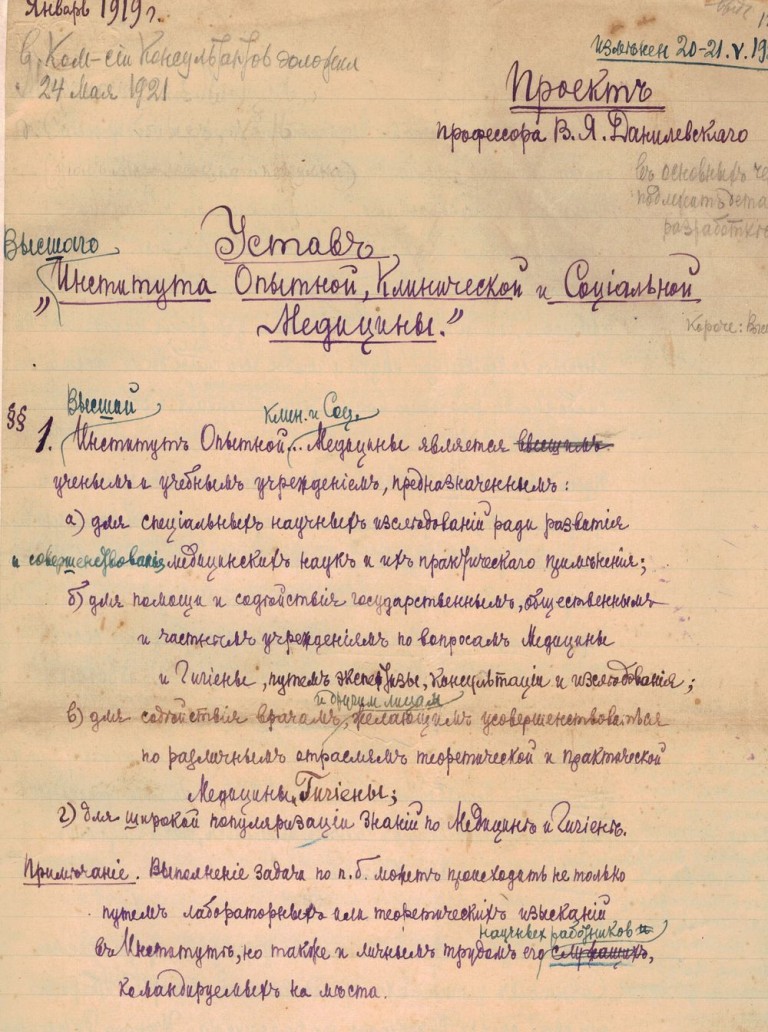 Январь 1919 г.
В Ком-сіи Консультантов доложен
24 Мая 1921
измѣнен 20-21.V.19
Проектъ
профессора В. Я. Данилевскаго
въ основныхъ че
подлежатъ
разработкѣ
Высшаго
Уставъ
„Института Опытной, Клинической и Соціальной
Медицины.”
Короче: Выс
Высшій
Клин. и Соц.
§§ 1. Институтъ Опытной... Медицины является высшимъ
ученымъ и учебнымъ учрежденіемъ, предназначеннымъ:
а) для спеціальныхъ научныхъ изслѣдованій ради развитія
и совершенствованія медицинскихъ наукъ и ихъ практическаго примѣненія;
б) для помощи и содѣйствія государственнымъ, общественнымъ
и частнымъ учрежденіямъ по вопросамъ Медицины
и Гигіены, путемъ экспертизы, консультаціи и изслѣдованія;
и другим лицам
в) для содѣйствія врачамъ, желающимъ усовершенствоваться
по различнымъ отраслямъ теоретической и практической
Медицины, Гигіены;
г) для широкой популяризаціи знаній по Медицинѣ и Гигіенѣ.
Примѣчаніе. Выполненіе задачи по п. б. можетъ происходить не только
путемъ лабораторныхъ или теоретическихъ изысканій
научных работников
въ Институтѣ, но также и личнымъ трудомъ его служащихъ,
командируемыхъ на мѣста.